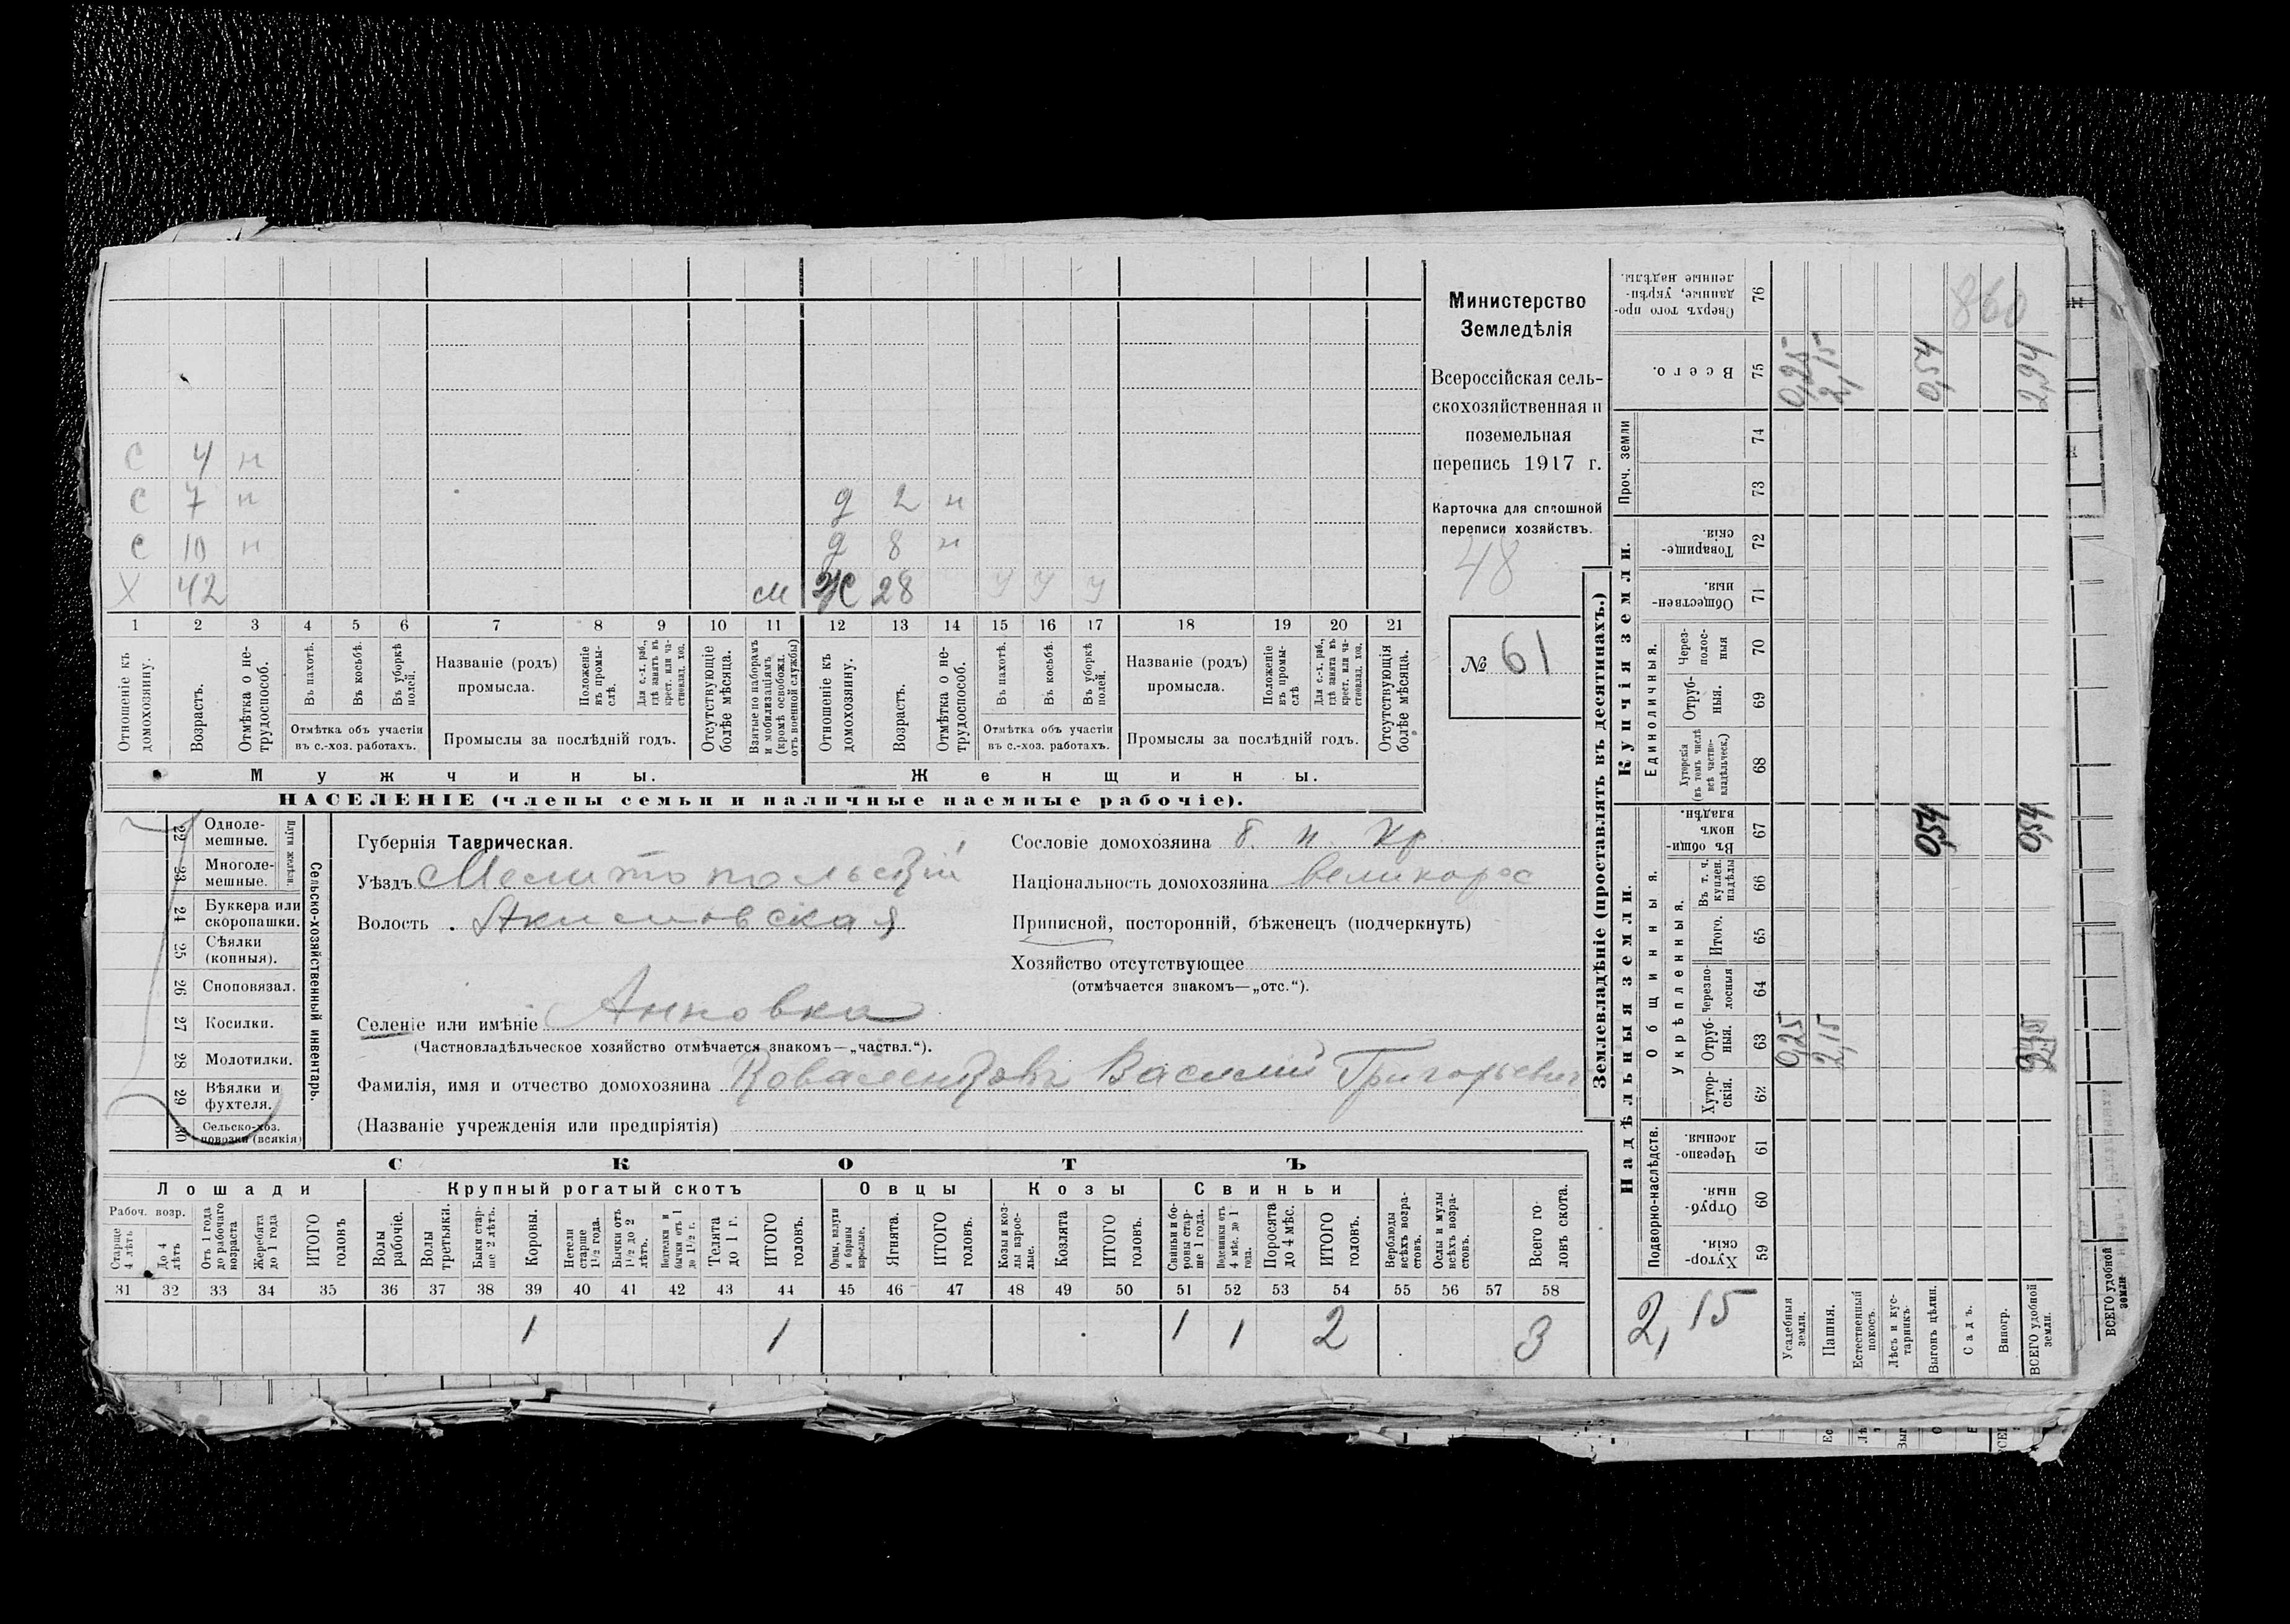 С 4 н
С 7 н д 2 н
С 10 н д 8 н
Х 42 м Ж 28 У У У
1 2 3 4 5 6 7 8 9 10 11 12 13 14 15 16 17 18 19 20 21
Отношеніе къ домохозяину.
Возрастъ.
Отмѣтка о не-трудоспособ.
Въ пахотѣ.
Въ косьбѣ.
Въ уборкѣ полей.
Отмѣтка объ участіи
въ с.-хоз. работахъ.
Названіе (родъ)
промысла.
Положеніе въ промы-слѣ.
Для с.-х. раб., гдѣ занятъ въ крест. или ча-стновлад. хоз.
Промыслы за послѣдній годъ.
Отсутствующіе болѣе мѣсяца.
Взятые по наборамъ и мобилизаціямъ (кромѣ освобожд. отъ военной службы)
Отношеніе къ домохозяину.
Возрастъ.
Отмѣтка о не-трудоспособ.
Въ пахотѣ.
Въ косьбѣ.
Въ уборкѣ полей.
Отмѣтка объ участіи
въ с.-хоз. работахъ.
Названіе (родъ)
промысла.
Положеніе въ промы-слѣ
Для с.-х. раб., гдѣ занята въ крест. или ча-стновлад. хоз.
Промыслы за послѣдній годъ.
Отсутствующія болѣе мѣсяца.
Мужчины. Женщины.
НАСЕЛЕНІЕ (члены семьи и наличные наемные рабочіе).
Министерство
Земледѣлія
Всероссійская сель-
скохозяйственная и
поземельная
перепись 1917 г.
Карточка для сплошной
переписи хозяйствъ.
48
№ 61
22 Одноле-мешные.
23 Многоле-мешные.
Плуги желѣзн.
24 Буккера или скоропашки.
25 Сѣялки (конныя).
26 Сноповязал.
27 Косилки.
28 Молотилки.
29 Вѣялки и фухтеля.
30 Сельско-хоз. повозки (всякія)
Сельско-хозяйственный инвентарь.
Губернія Таврическая.
Уѣздъ Мелитопольскій
Волость Акимовская
Селеніе или имѣніе Анновка
(Частновладѣльческое хозяйство отмѣчается знакомъ—„частвл.“).
Фамилія, имя и отчество домохозяина Коваленковъ Василій Григорьевич
(Названіе учрежденія или предпріятія)
Сословіе домохозяина б. п. кр.
Національность домохозяина великорос
Приписной, посторонній, бѣженецъ (подчеркнуть)
Хозяйство отсутствующее
(отмѣчается знакомъ—„отс.“).
СКОТЪ
Лошади Крупный рогатый скотъ Овцы Козы Свиньи
Рабоч. возр.
Старше 4 лѣтъ
До 4 лѣтъ
Отъ 1 года до рабочаго возраста
Жеребята до 1 года
ИТОГО головъ
Волы рабочіе.
Волы третьяки.
Быки стар-ше 2 лѣтъ.
Коровы.
Нетели старше 1½ года.
Бычки отъ 1½ до 2 лѣтъ.
Подтелки и бычки отъ 1 до 1½ г.
Телята до 1 г.
ИТОГО головъ.
Овцы, валухи и бараны взрослые.
Ягнята.
ИТОГО головъ.
Козы и коз-лы взрос-лые.
Козлята
ИТОГО головъ.
Свиньи и бо-ровы стар-ше 1 года.
Подсвинки отъ 4 мѣс. до 1 года.
Поросята до 4 мѣс.
ИТОГО головъ.
Верблюды всѣхъ возра-стовъ.
Ослы и мулы всѣхъ возра-стовъ.
Всего го-ловъ скота.
31 32 33 34 35 36 37 38 39 40 41 42 43 44 45 46 47 48 49 50 51 52 53 54 55 56 57 58
1 1 1 1 2 3
Землевладѣніе (проставлять въ десятинахъ.)
Надѣльныя земли. Купчія земли.
Подворно-наслѣдств.
Общинныя.
Укрѣпленныя.
Единоличныя.
Проч. земли
Хутор-скія. 59
Отруб-ныя. 60
Черезпо-лосныя. 61
Хутор-скія. 62
Отруб-ныя. 63 0,25 2,15
Черезпо-лосныя 64
Итого. 65
Въ т. ч. куплен. надѣлы 66
Въ общи-номъ владѣн. 67 0,54 0,54
Хуторскія (въ томъ числѣ всѣ частно-владѣльческ.) 68
Отруб-ныя. 69
Через-полос-ныя 70
Обществен-ныя. 71
Товарище-скія. 72
73
74
Всего. 75 0,25 2,15 0,54 2,94
Сверхъ того про-данные, укрѣп-ленные надѣлы. 76
860
2,15
Усадебныя земли.
Пашня.
Естественный покосъ.
Лѣсъ и кус-тарникъ.
Выгонъ цѣлин.
Садъ.
Виногр.
ВСЕГО удобной земли.
ВСЕГО удобной земли